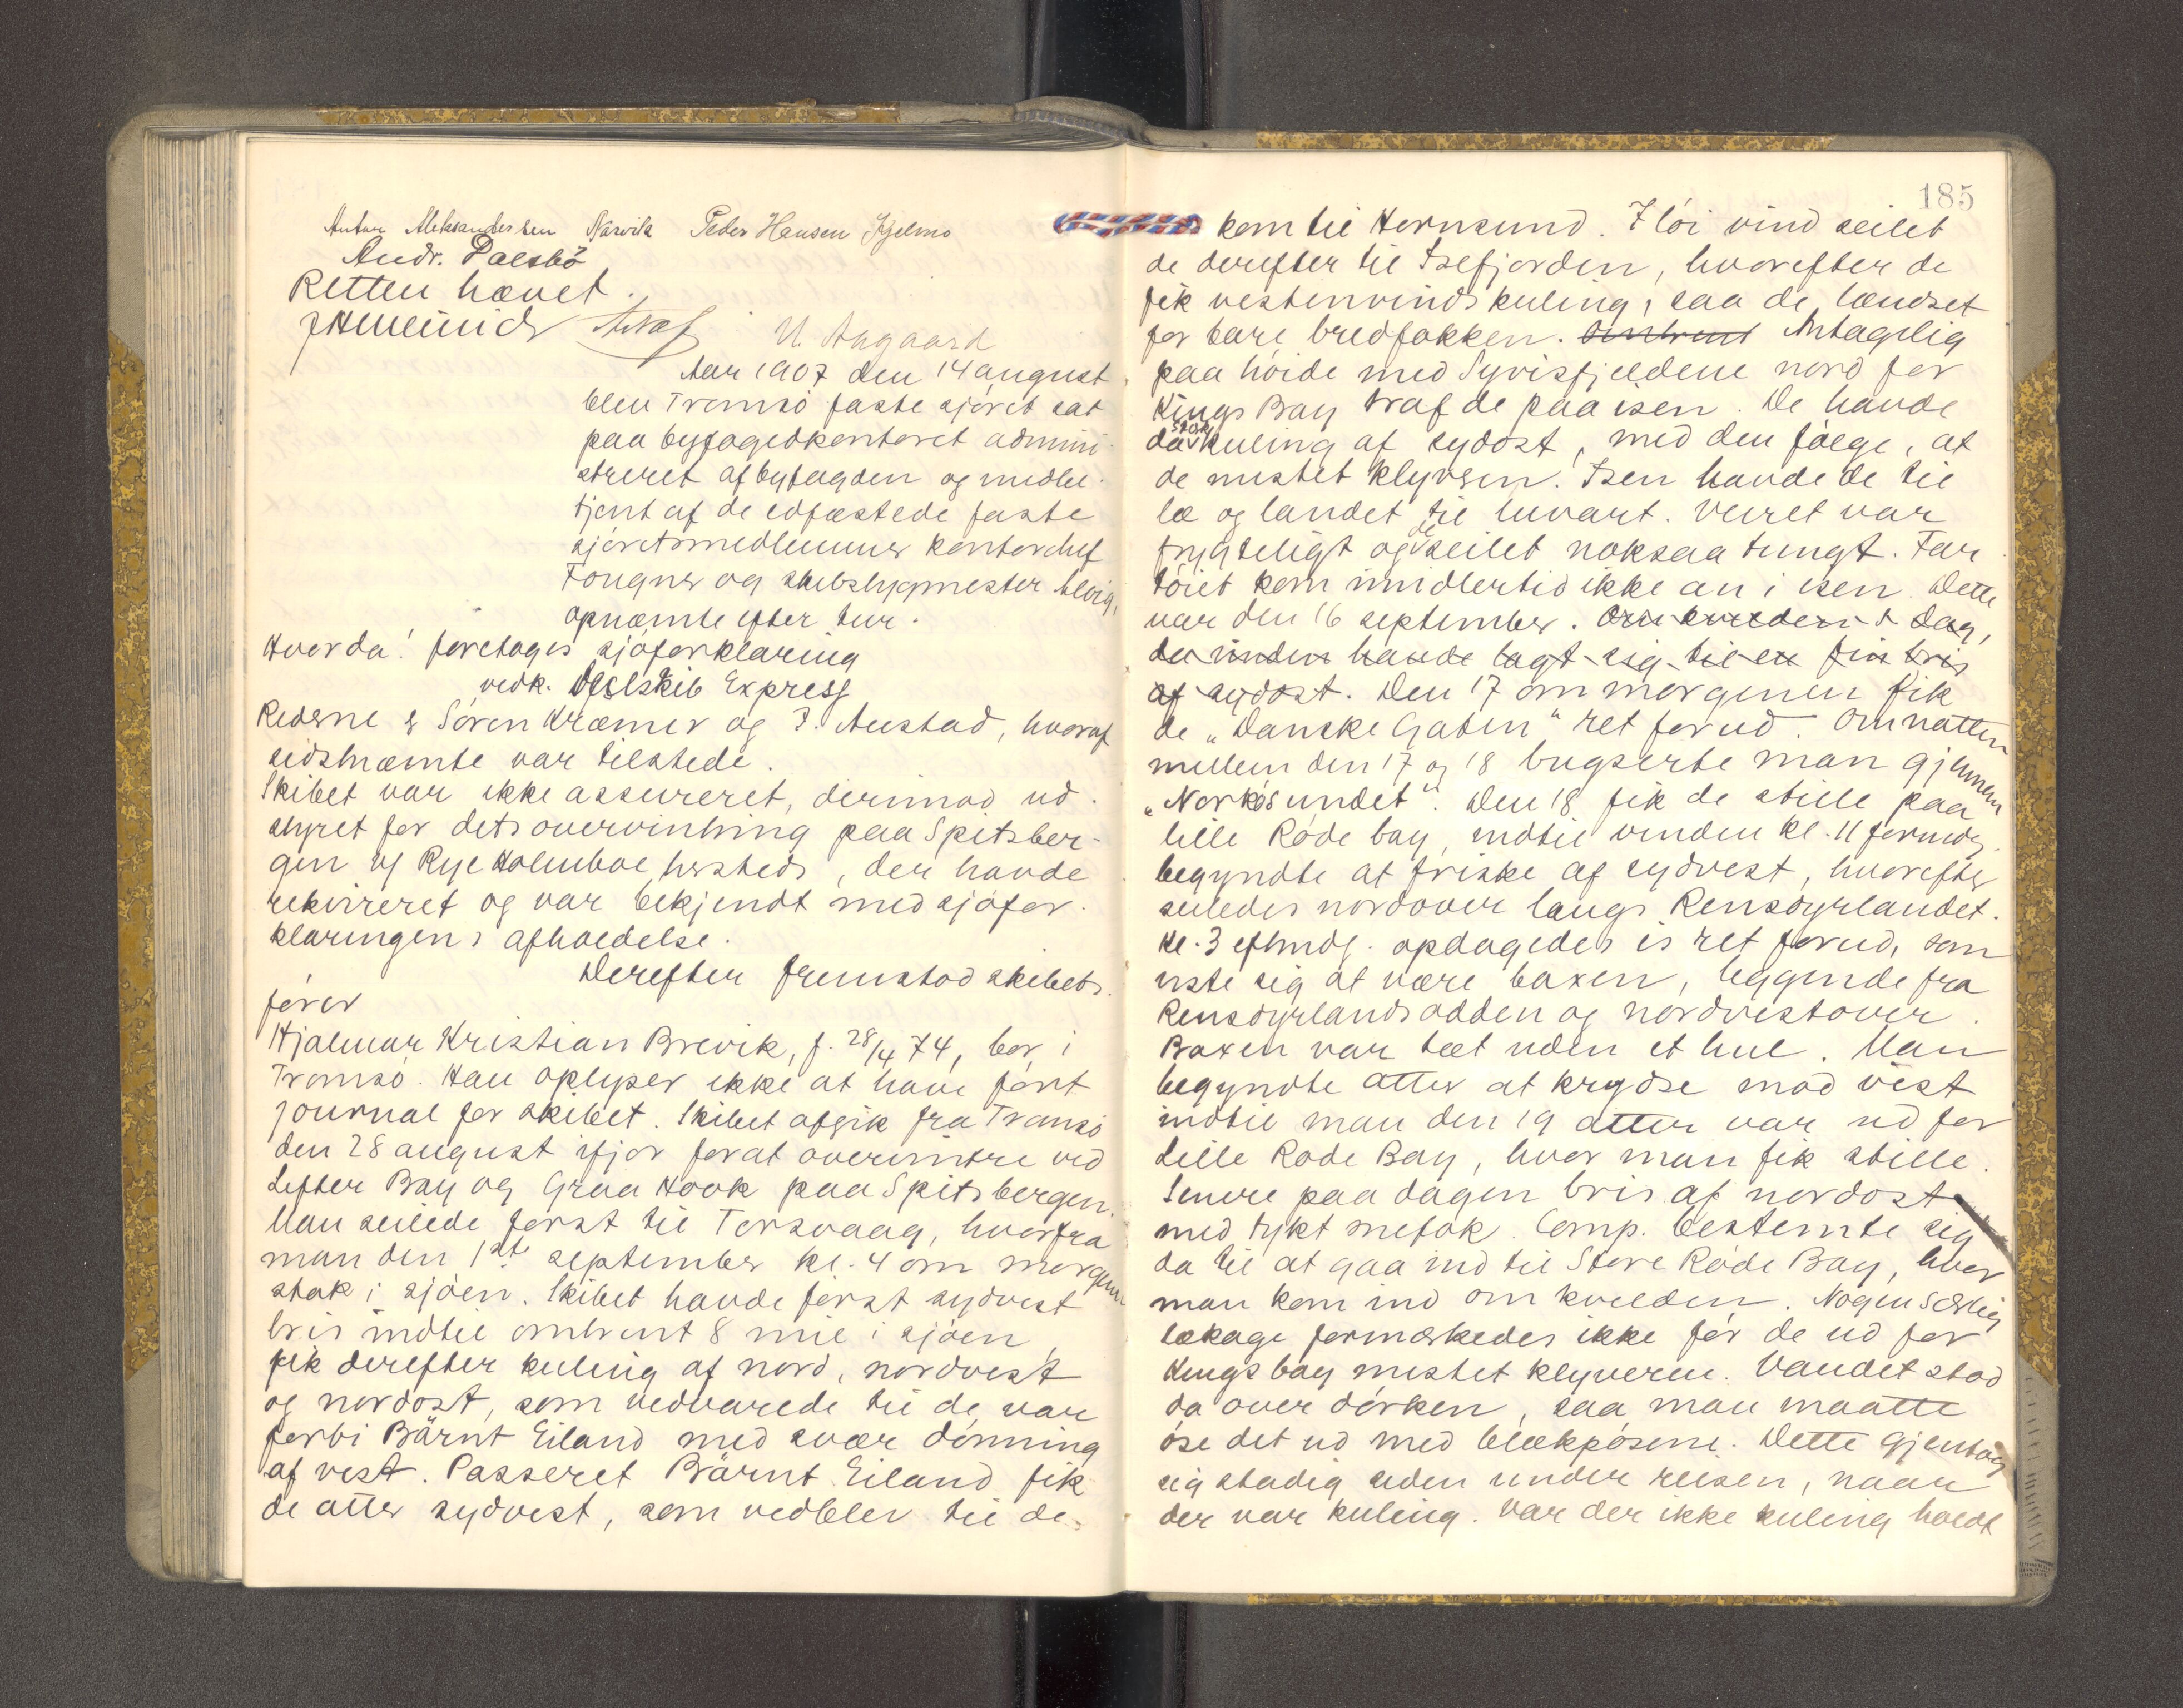 Anton Aleksandersen Näsvik Peder Hansen Kjelmo
Andr. Dalsbö
Retten hævet.
U. Aagaard
Aar 1907 den 14 august
blev Tromsø faste sjøret sat
paa byfogedkontoret admini-
streret af byfogden og medbe-
tjent af de edfæstede faste
sjøretsmedlemmer kontorchef
Fougner og skibsbygmester
opnæmte efter tur.
Hvorda! foretoges sjøforklaring
vedk. Dfslskib Express
Rederne er Søren Kræmer og J. Austad, hvoraf
sidstnæmte var tilstede.
Skibet var ikke assureret, derimod ud-
styret for dets overvintring paa Spitsber-
gen af Rye Holmboe hersteds, der havde
rekvireret og var bekjendt med sjøfor-
klaringens afholdelse.
Derefter fremstod skibets
fører
Hjalmar Kristian Brevik, f. 28/4 74, bor i
Tromsø. Han oplyser ikke at have ført
journal for skibet. Skibet afgik fra Tromsø
den 28 august ifjor forat overvintre ved
Lifter Bay og Graa Hook paa Spitsbergen.
Man seilede først til Torsvaag, hvorfra
man den 1ste september kl. 4 om morgenen
stak i sjøen. Skibet havde først sydvest
bris indtil omtrent 8 mil i sjøen,
fik derefter kuling af nord, nordvest
og nordost, som vedvarede til de var
forbi Bärnt Eiland med svær dønning
af vest. Passeret Bärnt Eiland fik
de atter sydvest, som vedblev til de
185
kom til Hornsund. I løi vind seilet
de derefter til Isefjorden, hvorefter de
fik vestenvindskuling, saa de lændset
for bare bredfokken. Omtrent Antagelig
paa høide med Syvisfjeldene nord for
Kings Bay traf de paa isen. De havde
da stærk kuling af sydost, med den følge, at
de mistet klyveren. Isen havde de til
læ og landet til luvart. Veiret var
frygteligt og de seilet noksaa tungt. Far-
tøiet kom imidlertid ikke an i isen. Dette
var den 16 september. dag,
da vinden havde lagt sig til en fin bris
af sydost. Den 17 om morgenen fik
de "Danske Gaten" ret forud. Om natten
mellem den 17 og 18 bugserte man gjennem
"Norkøsundet". Den 18 fik de stille paa
lille Røde bay, indtil vinden kl. 11 formdg.
begyndte at friske af sydvest, hvorefter
seiledes nordover langs Rensdyrlandet.
Kl. 3 eftmdg. opdagedes is ret forud, som
viste sig at være baxen, liggende fra
Rensdyrlandsodden og nordvestover.
Baxen var tæt uden et hul. Man
begyndte atter at krydse mod vest
indtil man den 19 atter var ud for
Lille Røde Bay, hvor man fik stille.
Senere paa dagen bris af nordost
med tykt snefok. Comp. bestemte sig
da til at gaa ind til Store Røde Bay, hvor
man kom ind om kvelden. Nogen særlig
lækage formærkedes ikke før de ud for
Kings bay mistet klyveren. Vandet stod
da over dørken, saa man maatte
øse det ud med blækpøsene. Dette gjentog
sig stadig siden under reisen, naar
der var kuling. Var der ikke kuling holdt